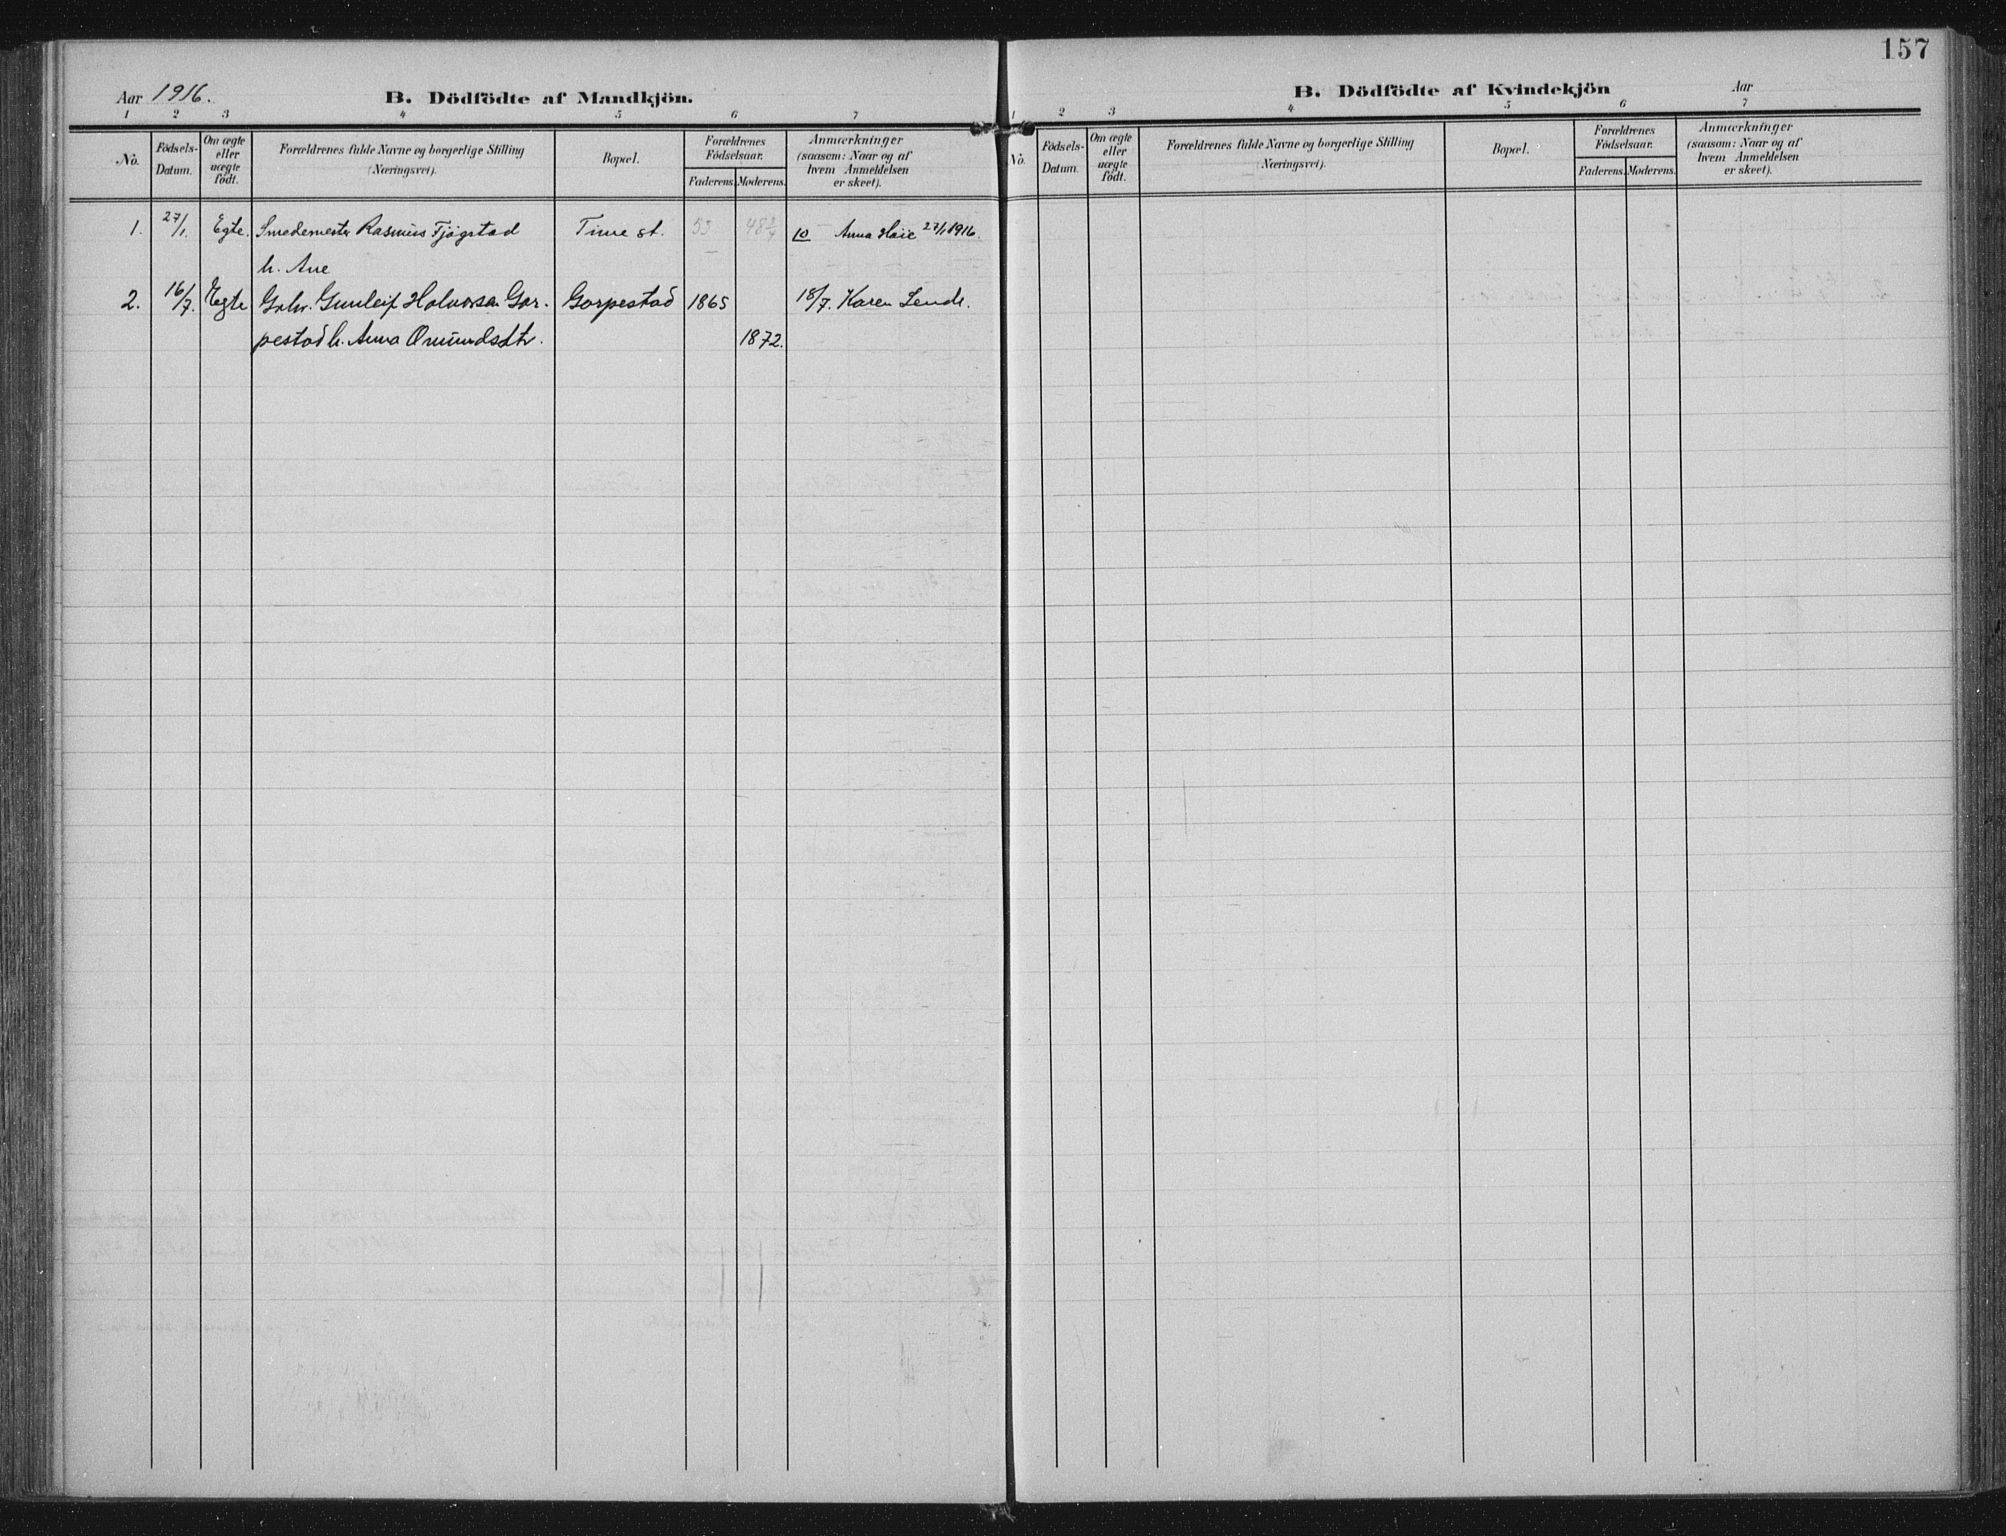 157
Aar 1916.
B. Dödfödte af Mandkjön.
1 2 3 4 5 6 7
No.
Födsels-
Datum.
Om ægte
eller
uægte
födt.
Forældrenes fulde Navne og borgerlige Stilling
(Næringsvei).
Bopæl.
Forældrenes
Födselsaar.
Faderens. Moderens.
Anmærkninger
(saasom: Naar og af
hvem Anmeldelsen
er skeet).
1. 27/1. Egte. Smedemester Rasmus Tjøgstad Time st. 53 10 Anna Haie 27/1 1916.
h. Ane
2. 16/7. Egte Gbr. Gunleif Halvorsen Gar- Garpestad 1865 18/7. Karen Lende.
pestad h. Anna Omundsdtr. 1872.
B. Dödfödte af Kvindekjön
Aar
1 2 3 4 5 6 7
No.
Födsels-
Datum.
Om ægte
eller
uægte
födt.
Forældrenes fulde Navne og borgerlige Stilling
(Næringsvei).
Bopæl.
Forældrenes
Födselsaar.
Faderens. Moderens.
Anmærkninger
(saasom: Naar og af
hvem Anmeldelsen
er skeet).